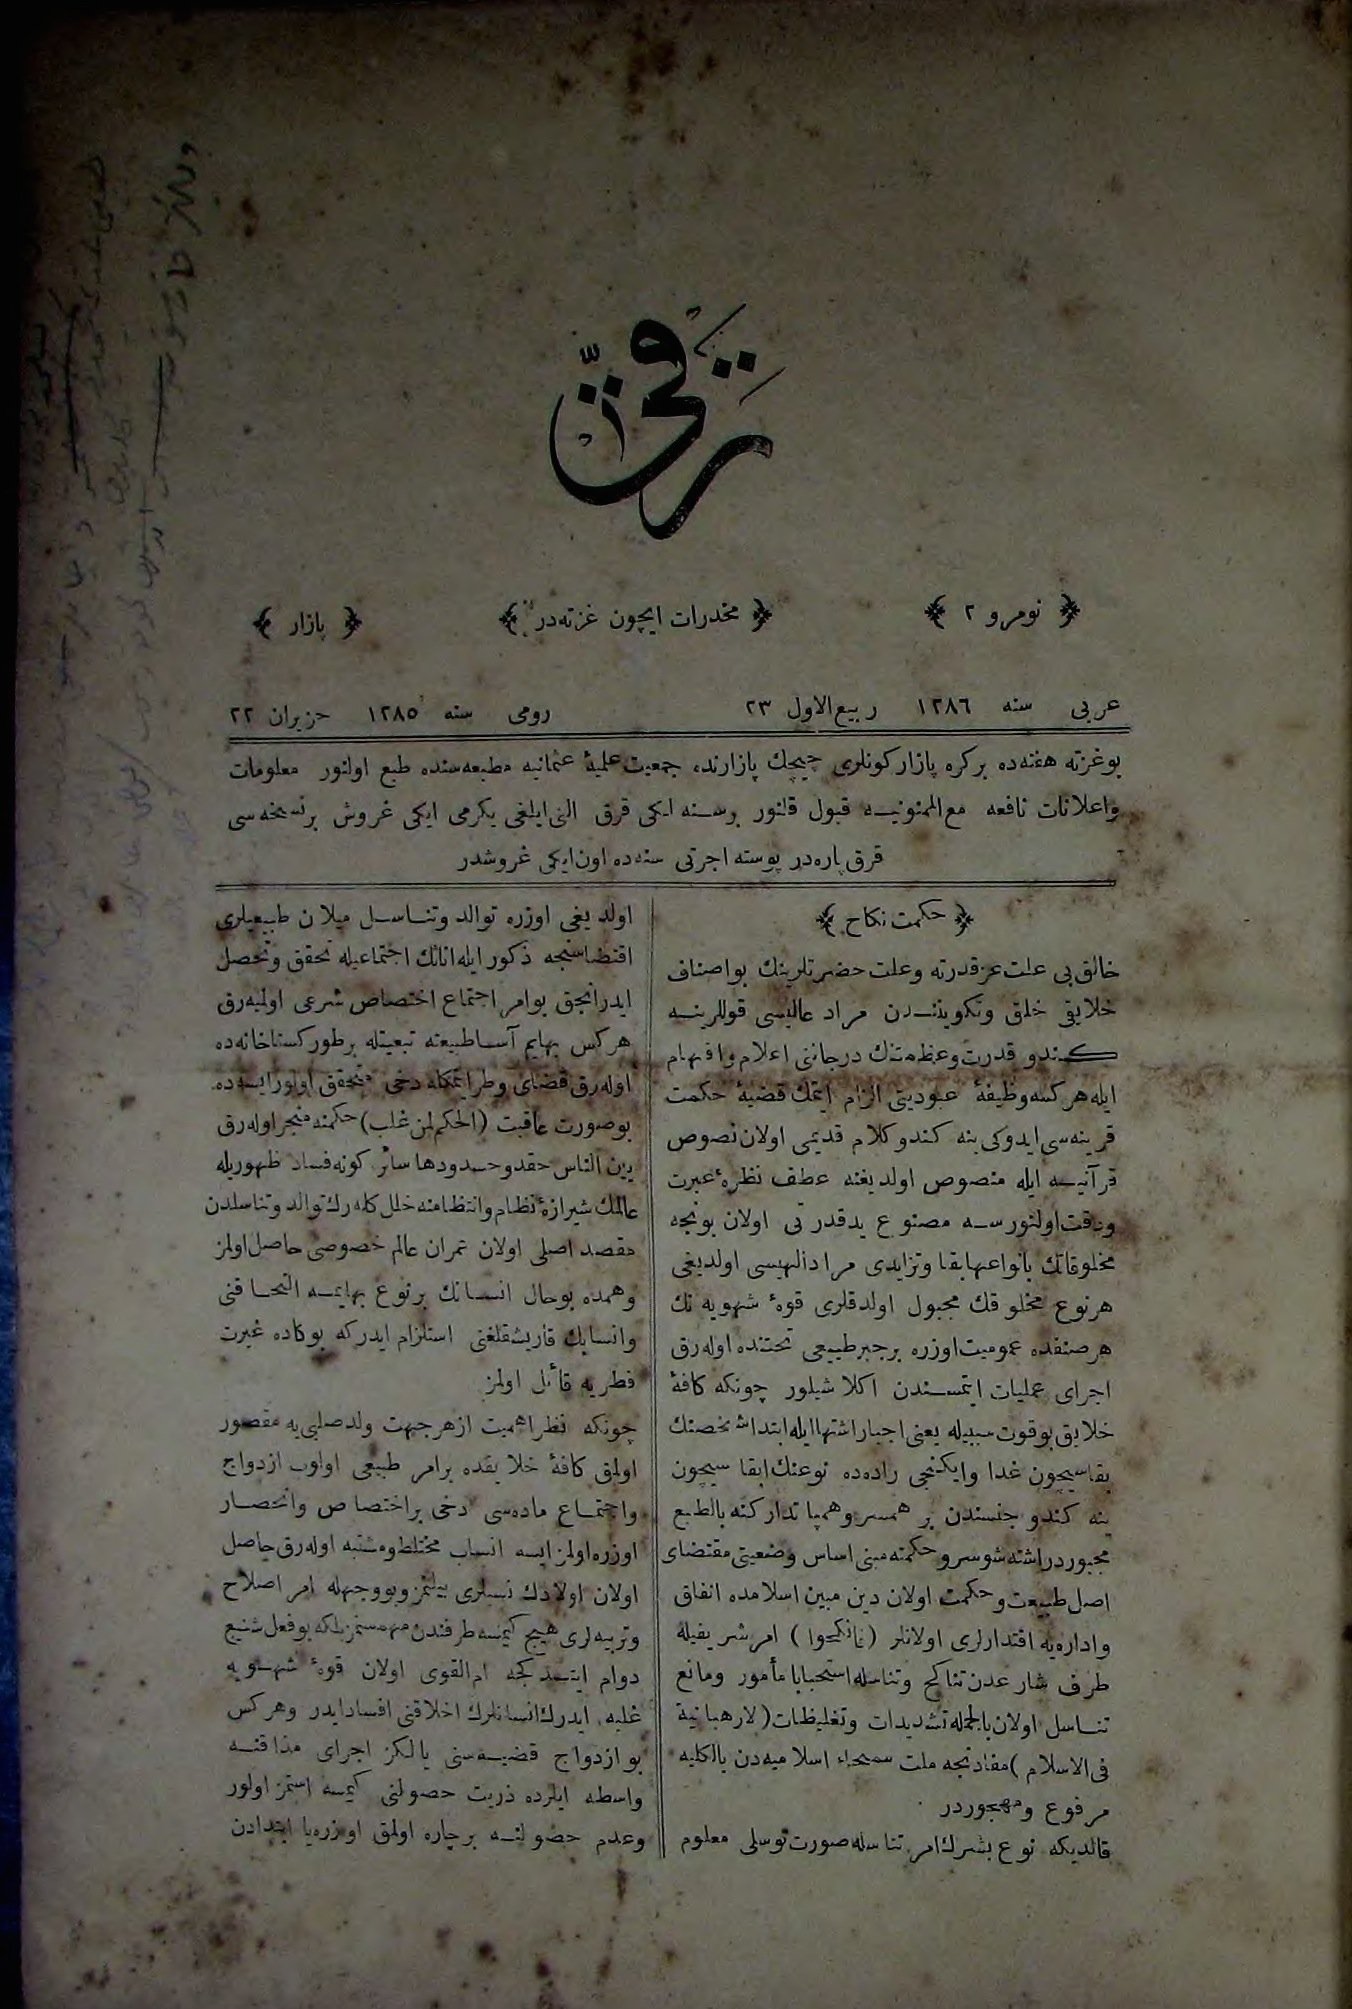 ترقی
نومرو ٢
مخدرات ایچون غزته‌در
پازار
عربی سنه ١٢٨٦ ربیع الاول ٢٣
رومی سنه ١٢٨٥ حزیران ٢٢
بو غزته هفته‌ده بركره پازار كونلری چیچك پازارنده جمعیت علمیهٔ عثمانیه مطبعه‌سنده طبع اولنور معلومات
واعلانات نافعه مع الممنونیه قبول قلنور برسنه لكی قرق الی ایلغی یكرمی ایكی غروش برنسخه‌سی
قرق پاره‌در پوسته اجرتی سنه‌ده اون ایكی غروشدر
حكمت نكاح
خالق بی علت عز قدرته وعلت حضرتلرینك بواصناف
خلایقی خلق وتكویننـدن مراد عالیسی قوللرینـه
كـندو قدرت وعظمتنك درجاننی اعلام وافهام
ایله هركسه وظیفهٔ عبودیتی الزام ایتمك قضیهٔ حكمت
قرینه‌سی ایدوكی ینه كندو كلام قدیمی اولان نصوص
قرآنیـه ایله منصوص اولدیغنه عطف نظرهٔ عبرت
ودقت اولنورسـه مصنوع یدقدرتی اولان بونجه
مخلوقاتك بانواعها بقا وتزایدی مراد الهیسی اولدیغی
هرنوع مخلوقك مجبول اولدقلری قوهٔ شهویه نك
هرصنفده عمومیت اوزره برجبر طبیعی تحتنده اوله‌رق
اجرای عملیات ایتمسـندن اكلاشیلور چونكه كافهٔ
خلایق بوقوت سببیله یعنی اجبار اشتها ایله ابتدا شخصنك
بقاسیچون غدا وایكنجی راده‌ده نوعنك ابقاسیچون
ینه كندو جنسندن بر همسر وهمپا تداركنه بالطبع
مجبوردر اشته شو سر وحكمته مبنی اساس وضعیتی مقتضای
اصل طبیعت وحكمت اولان دین مبین اسلامده انفاق
واداره‌یه اقتدارلری اولانلر (فانكحوا) امر شریفیله
طرف شارعدن تناكح وتناسله استحبابا مأمور ومانع
تناسل اولان بالجمله تشدیدات وتغلیظات (لارهبانیة
فی الاسلام) مفادنجه ملت سمحاء اسلامیه‌دن بالكلیه
مرفوع ومهجوردر
قالدیكه نوع بشرك امر تناسله صورت توسلی معلوم
اولدیغی اوزره توالد وتناسـل میلان طبیعیلری
اقتضاسنجه ذكور ایله اناثك اجتماعیله تحقق وتحصل
ایدر انجق بوامر اجتماع اختصاص شرعی اولمیه‌رق
هركس بهایم آسا طبیعته تبعیتله برطور كستاخانه‌ده
اوله‌رق قضای وطر ایتمكله دخی متحقق اولور ایسه‌ده
بوصورت عاقبت (الحكم لمن غلب) حكمنه منجر اوله‌رق
بین الناس حقد وحسدودها سائر كونه فساد ظهوریله
عالمك شیرازهٔ نظام وانتظامنه خلل كله‌رك توالد وتناسلدن
مقصد اصلی اولان عمران عالم خصوصی حاصل اولمز
وهمده بوحال انسـانك برنوع بهایمـه التحـاقنی
وانسابك قاریشقلغنی استلزام ایدركه بوكاده غیرت
فطریه قائل اولمز
چونكه نظر اهمیت از هرجهت ولد صلبی‌یه مقصور
اولمق كافهٔ خلایقده برامر طبیعی اولوب ازدواج
واجتماع ماده‌سی دخی براختصاص وانحصـار
اوزره اولمز ایسه انساب مختلط ومشتبه اوله‌رق حاصل
اولان اولادك نسبلری بیلنمز وبووجهله امر اصلاح
وتربیه‌لری هیچ كیمسه طرفندن بلكه بوفعل شنیع
دوام ایتـدكجه ام القوی اولان قوهٔ شهـویه
غلبه ایدرك انسانلرك اخلاقنی افساد ایدر وهركس
بوازدواج قضیـه‌سنی یالكز اجرای مذاقنـه
واسطه ایلرده ذریت حصولنی كیمسه استمز اولور
وعدم حصولنـه برچاره اولمق اوزره یا ابتدادن